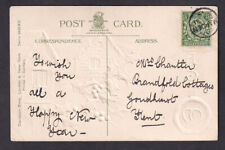 POST CARD.
CORRESPONDENCE.
ADDRESS.
I wish
You
all a
Happy New
Year
Mrs Chantler
Brandfold Cottages
Goudhurst
Kent